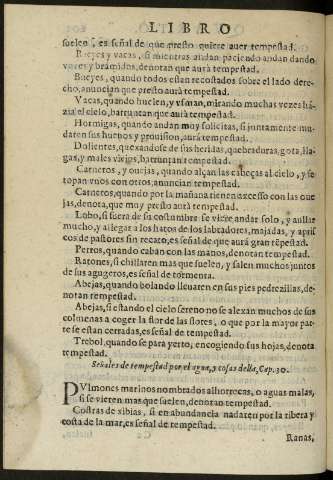 LIBRO
suelen, es señal de que presto quiere auer tempestad.
Bueyes y vacas, si mientras andan paciendo andan dando
vozes y brámidos, denotan que aurà tempestad.
Bueyes, quando todos estan recostados sobre el lado dere-
cho, anuncian que presto aurà tempestad.
Vacas, quando huelen, y vsman, mirando muchas vezes há-
zia el cielo, barruntan que aurà tempestad.
Hormigas, quando andan muy solicitas, si juntamente mu-
daren sus hueuos y prouision, aurà tempestad.
Dolientes, quexandose de sus heridas, quebraduras, gota, lla-
gas, y males viejos, barruntan tempestad.
Carneros, y ouejas, quando alçan las cabeças al cielo, y se
topan vnos con otros, anuncian tempestad.
Carneros, quando por la mañana tienen accesso con las oue
jas, denota, que muy presto aurà tempestad.
Lobo, si fuera de su costumbre se viere andar solo, y aullar
mucho, y allegar a los hatos de los labradores, majadas, y apris
cos de pastores sin recato, es señal de que aurà gran tempestad.
Perros, quando caban con las manos, denotan tempestad.
Ratones, si chillaren mas que suelen, y salen muchos juntos
de sus agugeros, es señal de tormenta.
Abejas, quando bolando lleuaren en sus pies pedrezillas, de-
notan tempestad.
Abejas, si estando el cielo sereno no se alexan muchos de sus
colmenas a coger la flor de las flores, o que por la mayor par-
te se estan cerradas, es señal de tempestad.
Trebol, quando se para yerto, encogiendo sus hojas, denota
tempestad.
Señales de tempestad por el agua, y cosas della, Cap. 30.
PVlmones marinos nombrados alhorrecas, o aguas malas,
si se vieren mas que suelen, denotan tempestad.
Costras de xibias, si en abundancia nadaren por la ribera y
costa de la mar, es señal de tempestad.
Ranas,